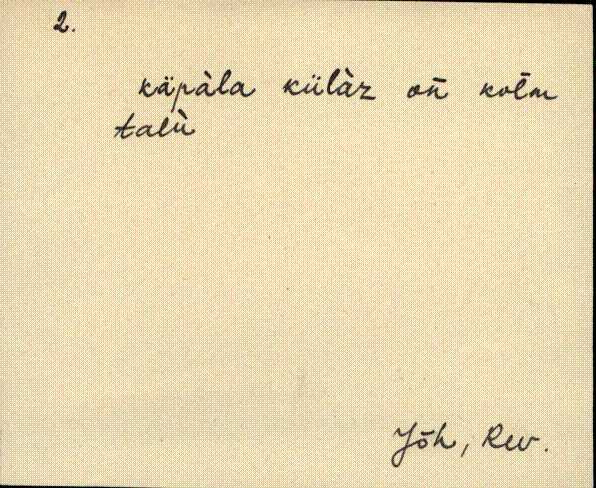 2.
käpàla külàz on̄ kol̄m
talù
Jõh, Rev.